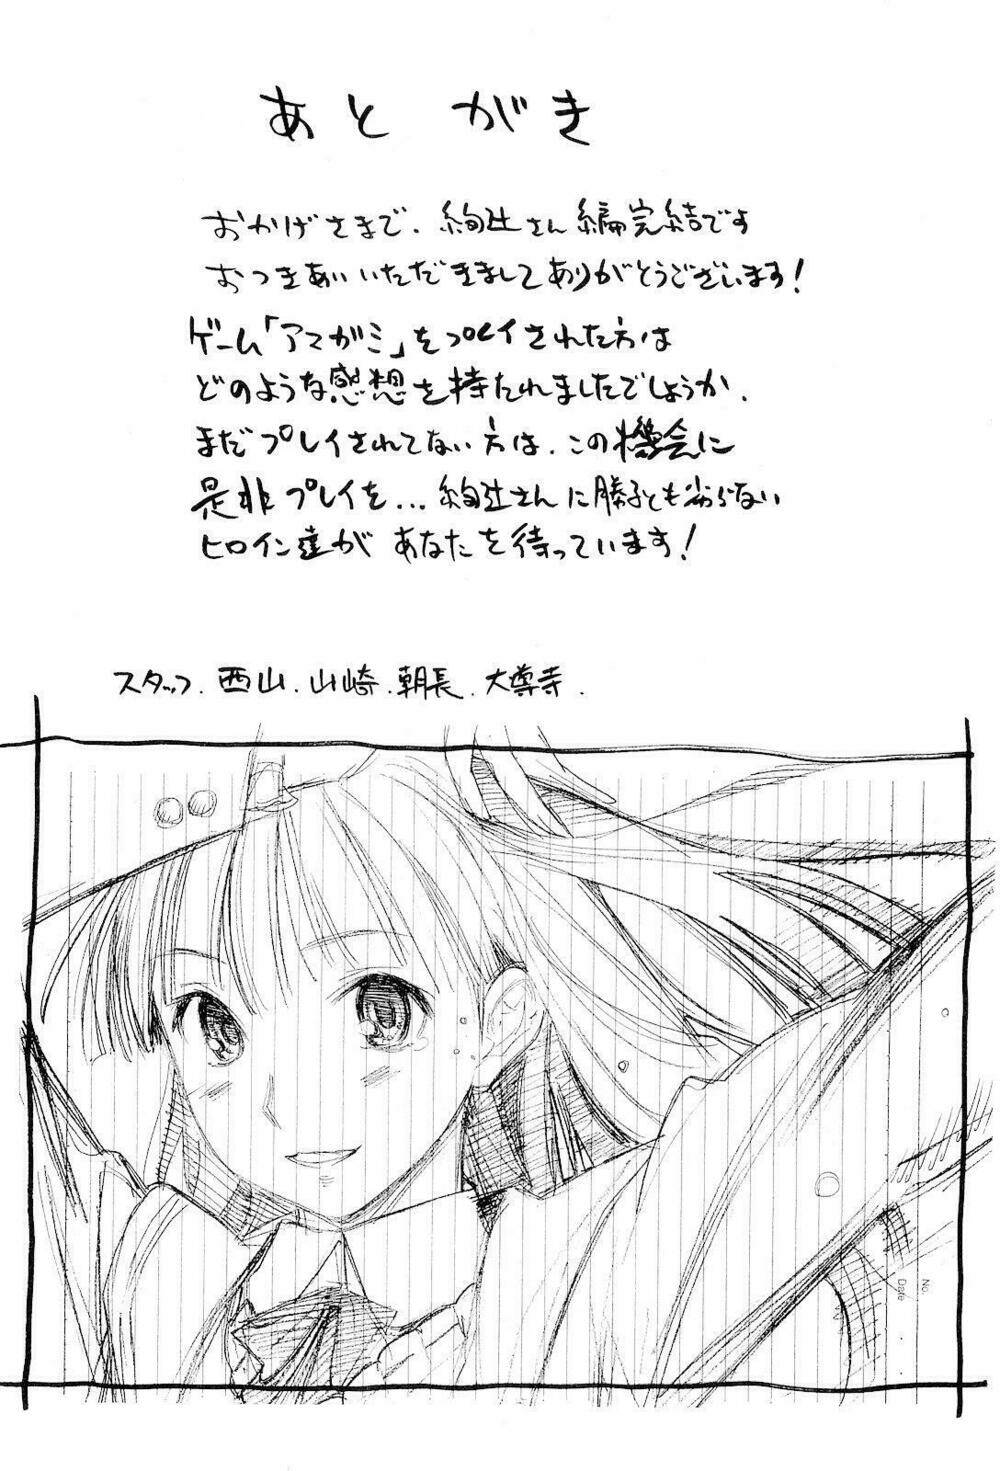 あとがき
おかげさまで、絢辻さん編完結です
おつきあいいただきましてありがとうございます!
ゲーム「アマガミ」をプレイされた方は
どのような感想を持たれましたでしょうか、
まだプレイされてない方は、この機会に
是非プレイを...絢辻さんに勝るとも劣らない
ヒロイン達があなたを待っています!
スタッフ、西山、山崎、朝長、大尊寺、
No.
Date